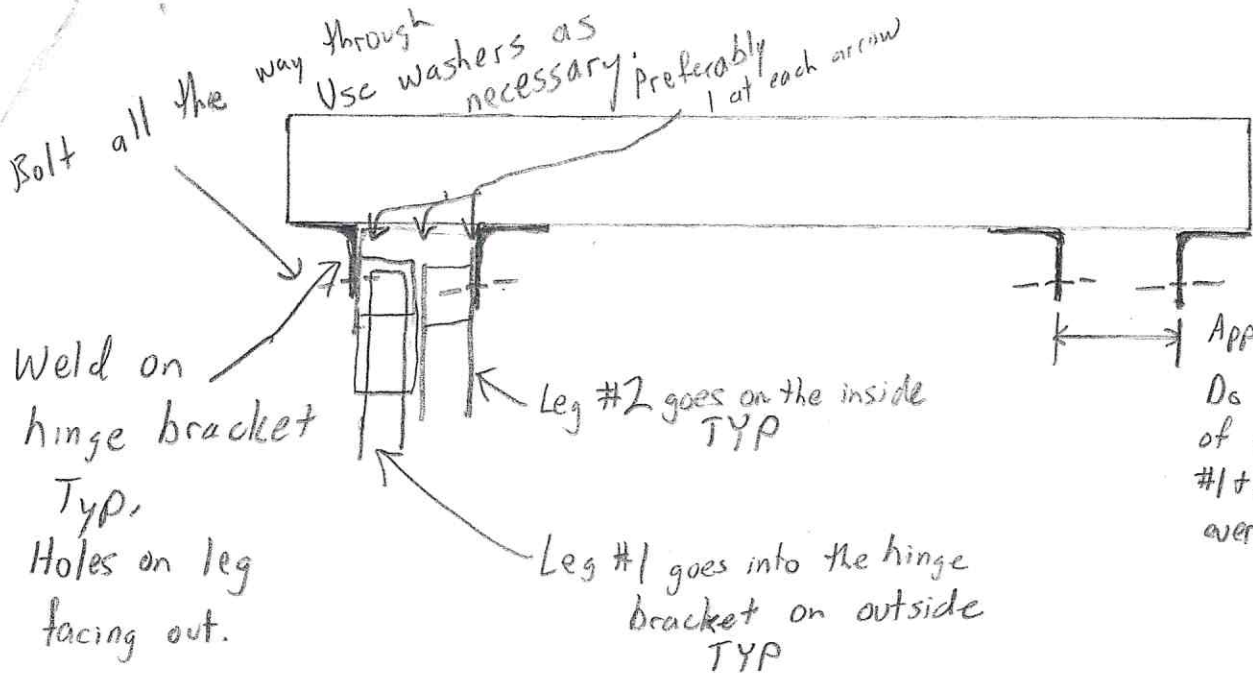 Bolt all the way through
Use washers as
necessary. Preferably
1 at each arrow
Weld on
hinge bracket
Typ.
Holes on leg
facing out.
Leg #2 goes on the inside
TYP
Leg #1 goes into the hinge
bracket on outside
TYP
App
Do
of
#1 +
over